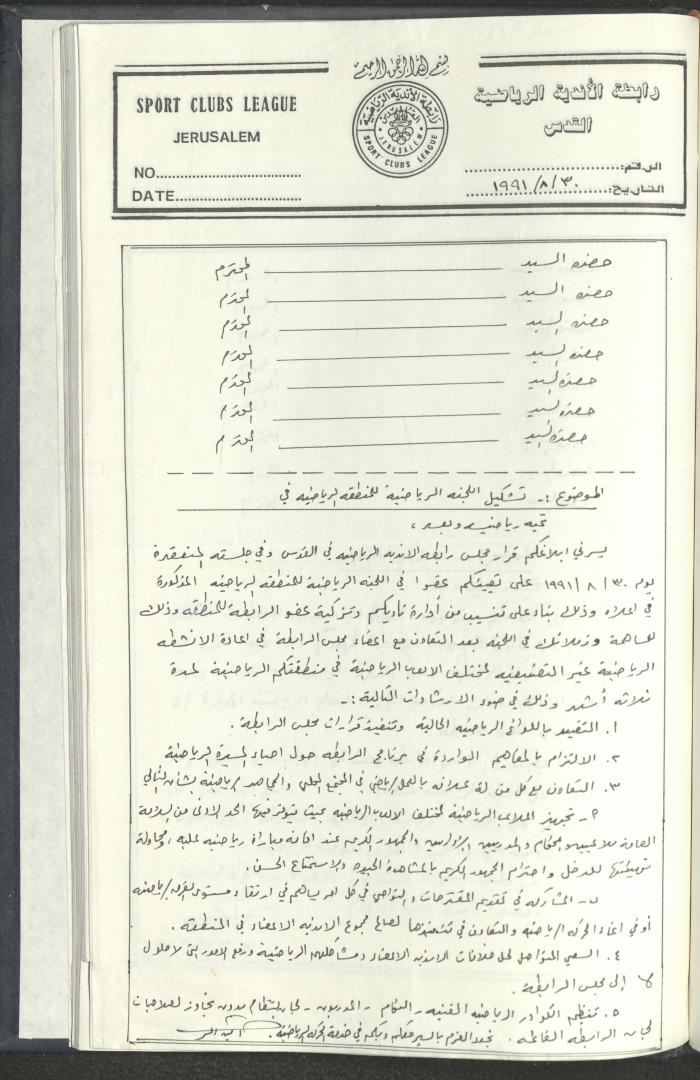 بسم الله الرحمن الرحيم
رابطة الأندية الرياضية
القدس
SPORT CLUBS LEAGUE
JERUSALEM
رابطة الأندية الرياضية
القدس
JERUSALEM
SPORT CLUBS LEAGUE
NO.
DATE
الرقم:
التاريخ: ٣٠/٨/١٩٩١
حضرة السيد المحترم
حضرة السيد المحترم
حضرة السيد المحترم
حضرة السيد المحترم
حضرة السيد المحترم
حضرة السيد المحترم
حضرة السيد المحترم
الموضوع :- تشكيل اللجنه الرياضية للمنطقه الرياضيه في
تحيه رياضيه وبعد ،
يسرني ابلاغكم قرار مجلس رابطه الانديه الرياضيه في القدس وفي جلسته المنعقدة
يوم ٣٠/٨/١٩٩١ على تعيينكم عضوا في اللجنه الرياضية للمنطقه الرياضيه المذكورة
في اعلاه وذلك بناء على تنسيب من أدارة ناديكم وتزكية عضو الرابطة للمنطقه وذلك
للمساهمة وزملائك في اللجنه بعد التعاون مع اعضاء مجلس الرابطة في اعادة الانشطه
الرياضية غير التصنيفيه لمختلف الالعاب الرياضية في منطقتكم الرياضية لمدة
ثلاثه أشهر وذلك في ضوء الارشادات التالية :-
١. التقيد باللوائح الرياضيه الحالية وتنفيذ قرارات مجلس الرابطة .
٢. الالتزام بالمفاهيم الواردة في برنامج الرابطه حول احياء المسيرة الرياضية
٣. التعاون مع كل من له علاقه بالعمل الرياضي في المجتمع المحلي الرياضية بشأن التالي
أ- تجهيز الملاعب الرياضية لمختلف الالعاب الرياضيه بحيث يتوفر فيها الحد الادنى من السلامة
العامة للاعبين والحكام والمدربين والاداريين والجمهور الكريم عند اقامة مباراة رياضيه عليه ، ومحاولة
تهيئتها للدخل واحترام الجمهور الكريم بالمشاهدة الجيده والاستمتاع الحسن .
ب- المشاركه في تقديم المقترحات والتواصي في كل امر يساهم في ارتقاء مستوى الرياضيه
أو في اغناء الحركه الرياضيه والتعاون في تنفيذها لصالح مجموع الانديه الاعضاء في المنطقة .
٤. السعي المتواصل لحل خلافات الانديه الاعضاء ومشاكلهم الرياضية ورفع الامور التي لا حلول
لها إلى مجلس الرابطة .
٥. تنظيم الكوادر الرياضيه الفنيه - الحكام - المدربون - لجان بانتظام بدون تجاوز لصلاحيات
لجان الرابطه العامله . نجدد العزم بالسير معكم وبكم في خدمة الحركة الرياضية .